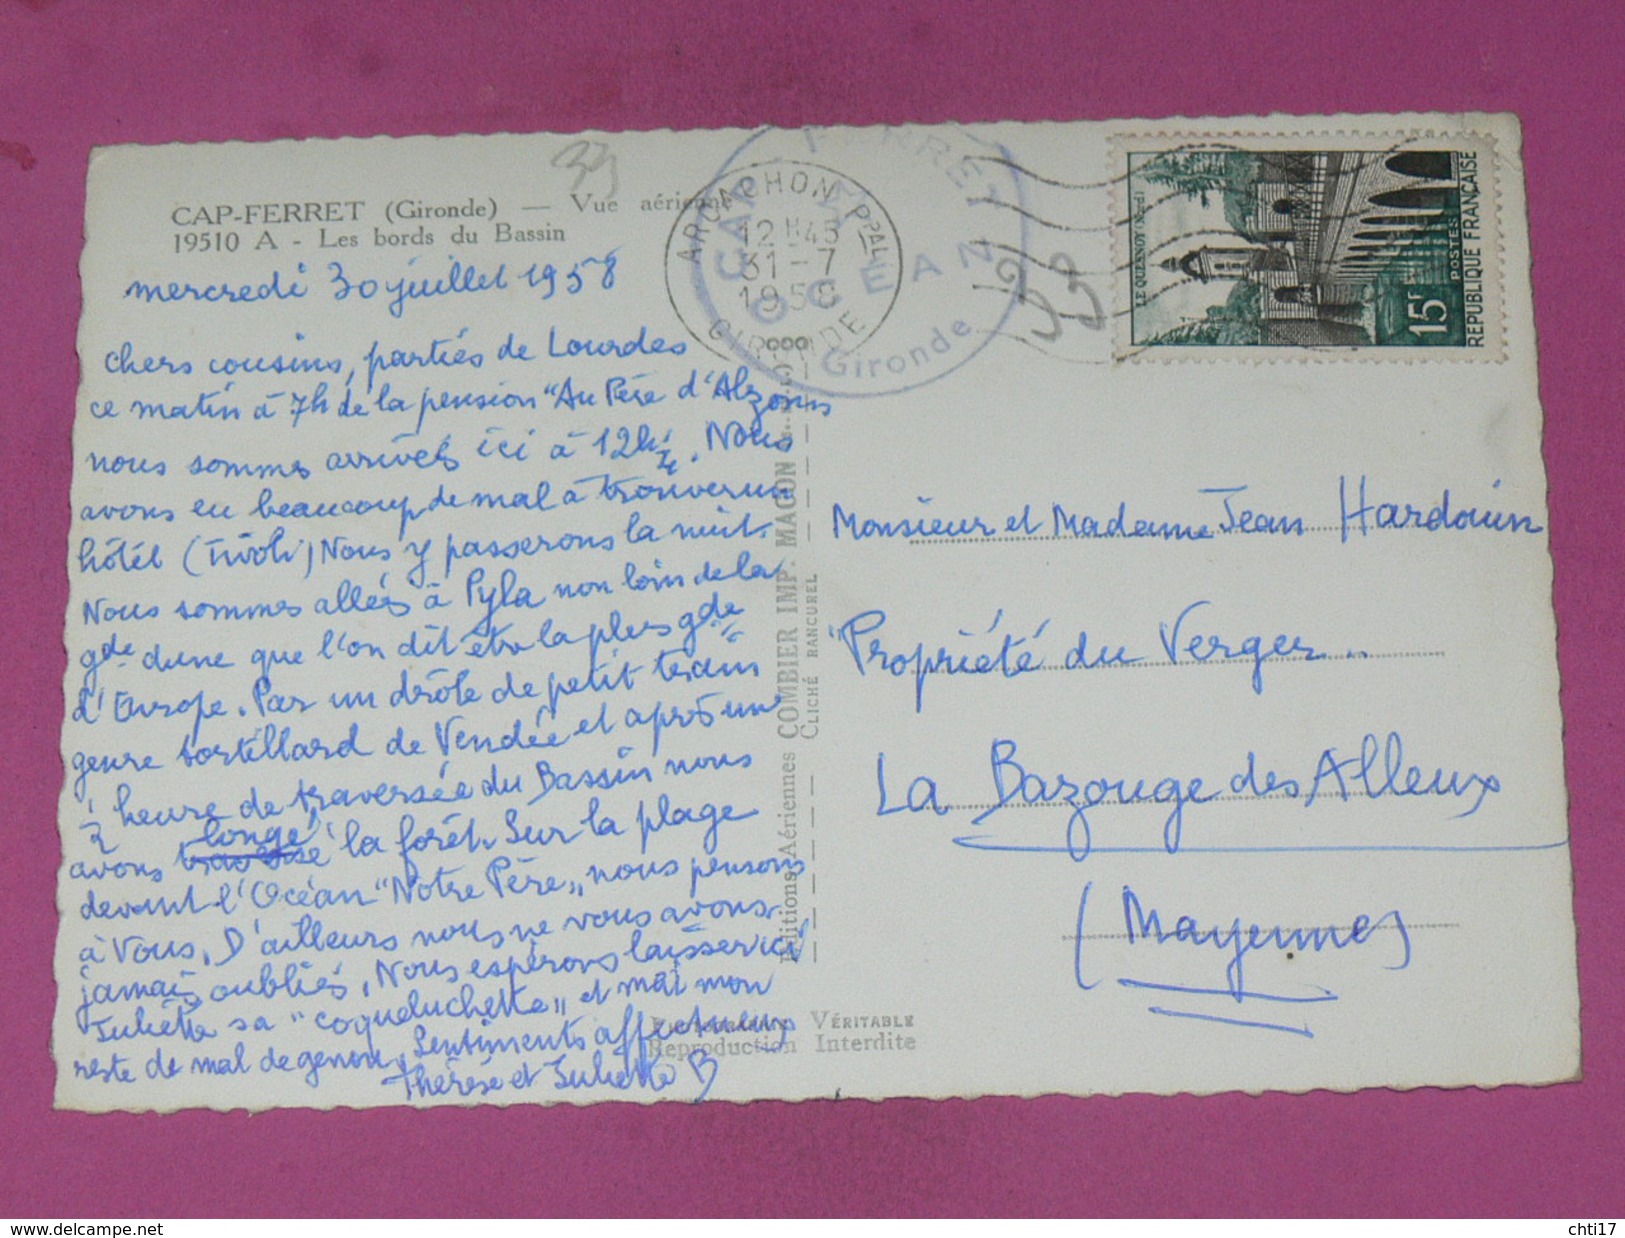 CAP-FERRET (Gironde) — Vue aérienne
19510 A - Les bords du Bassin
33
mercredi 30 juillet 1958
Chers cousins, parties de Lourdes
ce matin à 7h de la pension "Au Père d'Alzon"
nous sommes arrivées ici à 12h ½. Nous
avons eu beaucoup de mal à trouver un
hôtel (Tivoli) Nous y passerons la nuit.
Nous sommes allées à Pyla non loin de la
gde dune que l'on dit être la plus gde
d'Europe. Par un drôle de petit train
genre tortillard de Vendée et après une
½ heure de traversée du Bassin nous
avons longé la forêt. Sur la plage
devant l'Océan "Notre Père" nous pensons
à Vous. D'ailleurs nous ne vous avons
jamais oubliés. Nous espérons laisser ici
Juliette sa "coqueluchette" et moi mon
reste de mal de genou. Sentiments affectueux
Thérèse et Juliette B
ARCACHON PPAL
12H45
31-7
1958
GIRONDE
CAP FERRET
OCÉAN
Gironde
33
LE QUESNOY (Nord)
15F
POSTES
REPUBLIQUE FRANÇAISE
Editions Aériennes COMBIER IMP. MACON
CLICHÉ RANCUREL
Monsieur et Madame Jean Hardouin
Propriété du Verger
La Bazouge des Alleux
(Mayenne)
PHOTOGRAPHIE VÉRITABLE
Reproduction Interdite
www.delcampe.net
chti17